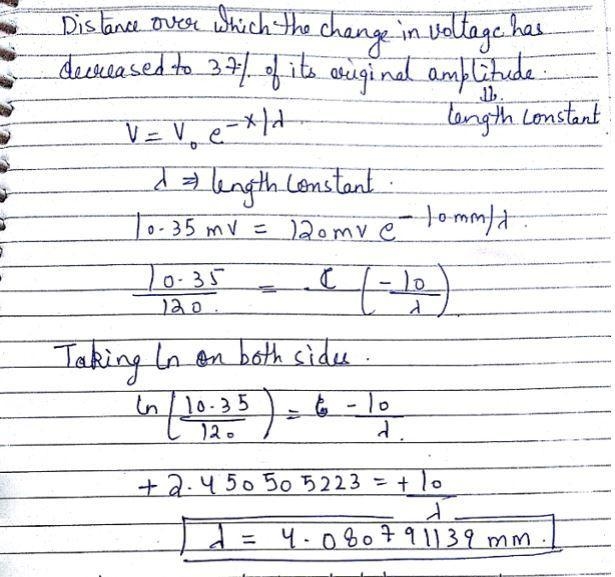 Distance over which the change in voltage has
decreased to 37% of its original amplitude.
⇓
length constant
V = V₀ e^-x/λ
λ ⇒ length constant.
10.35 mV = 120mV e^-10mm/λ.
10.35/120. = e(-10/λ)
Taking ln on both sides.
ln(10.35/120) = -10/λ.
+2.450505223 = +10/λ
λ = 4.080791139 mm.